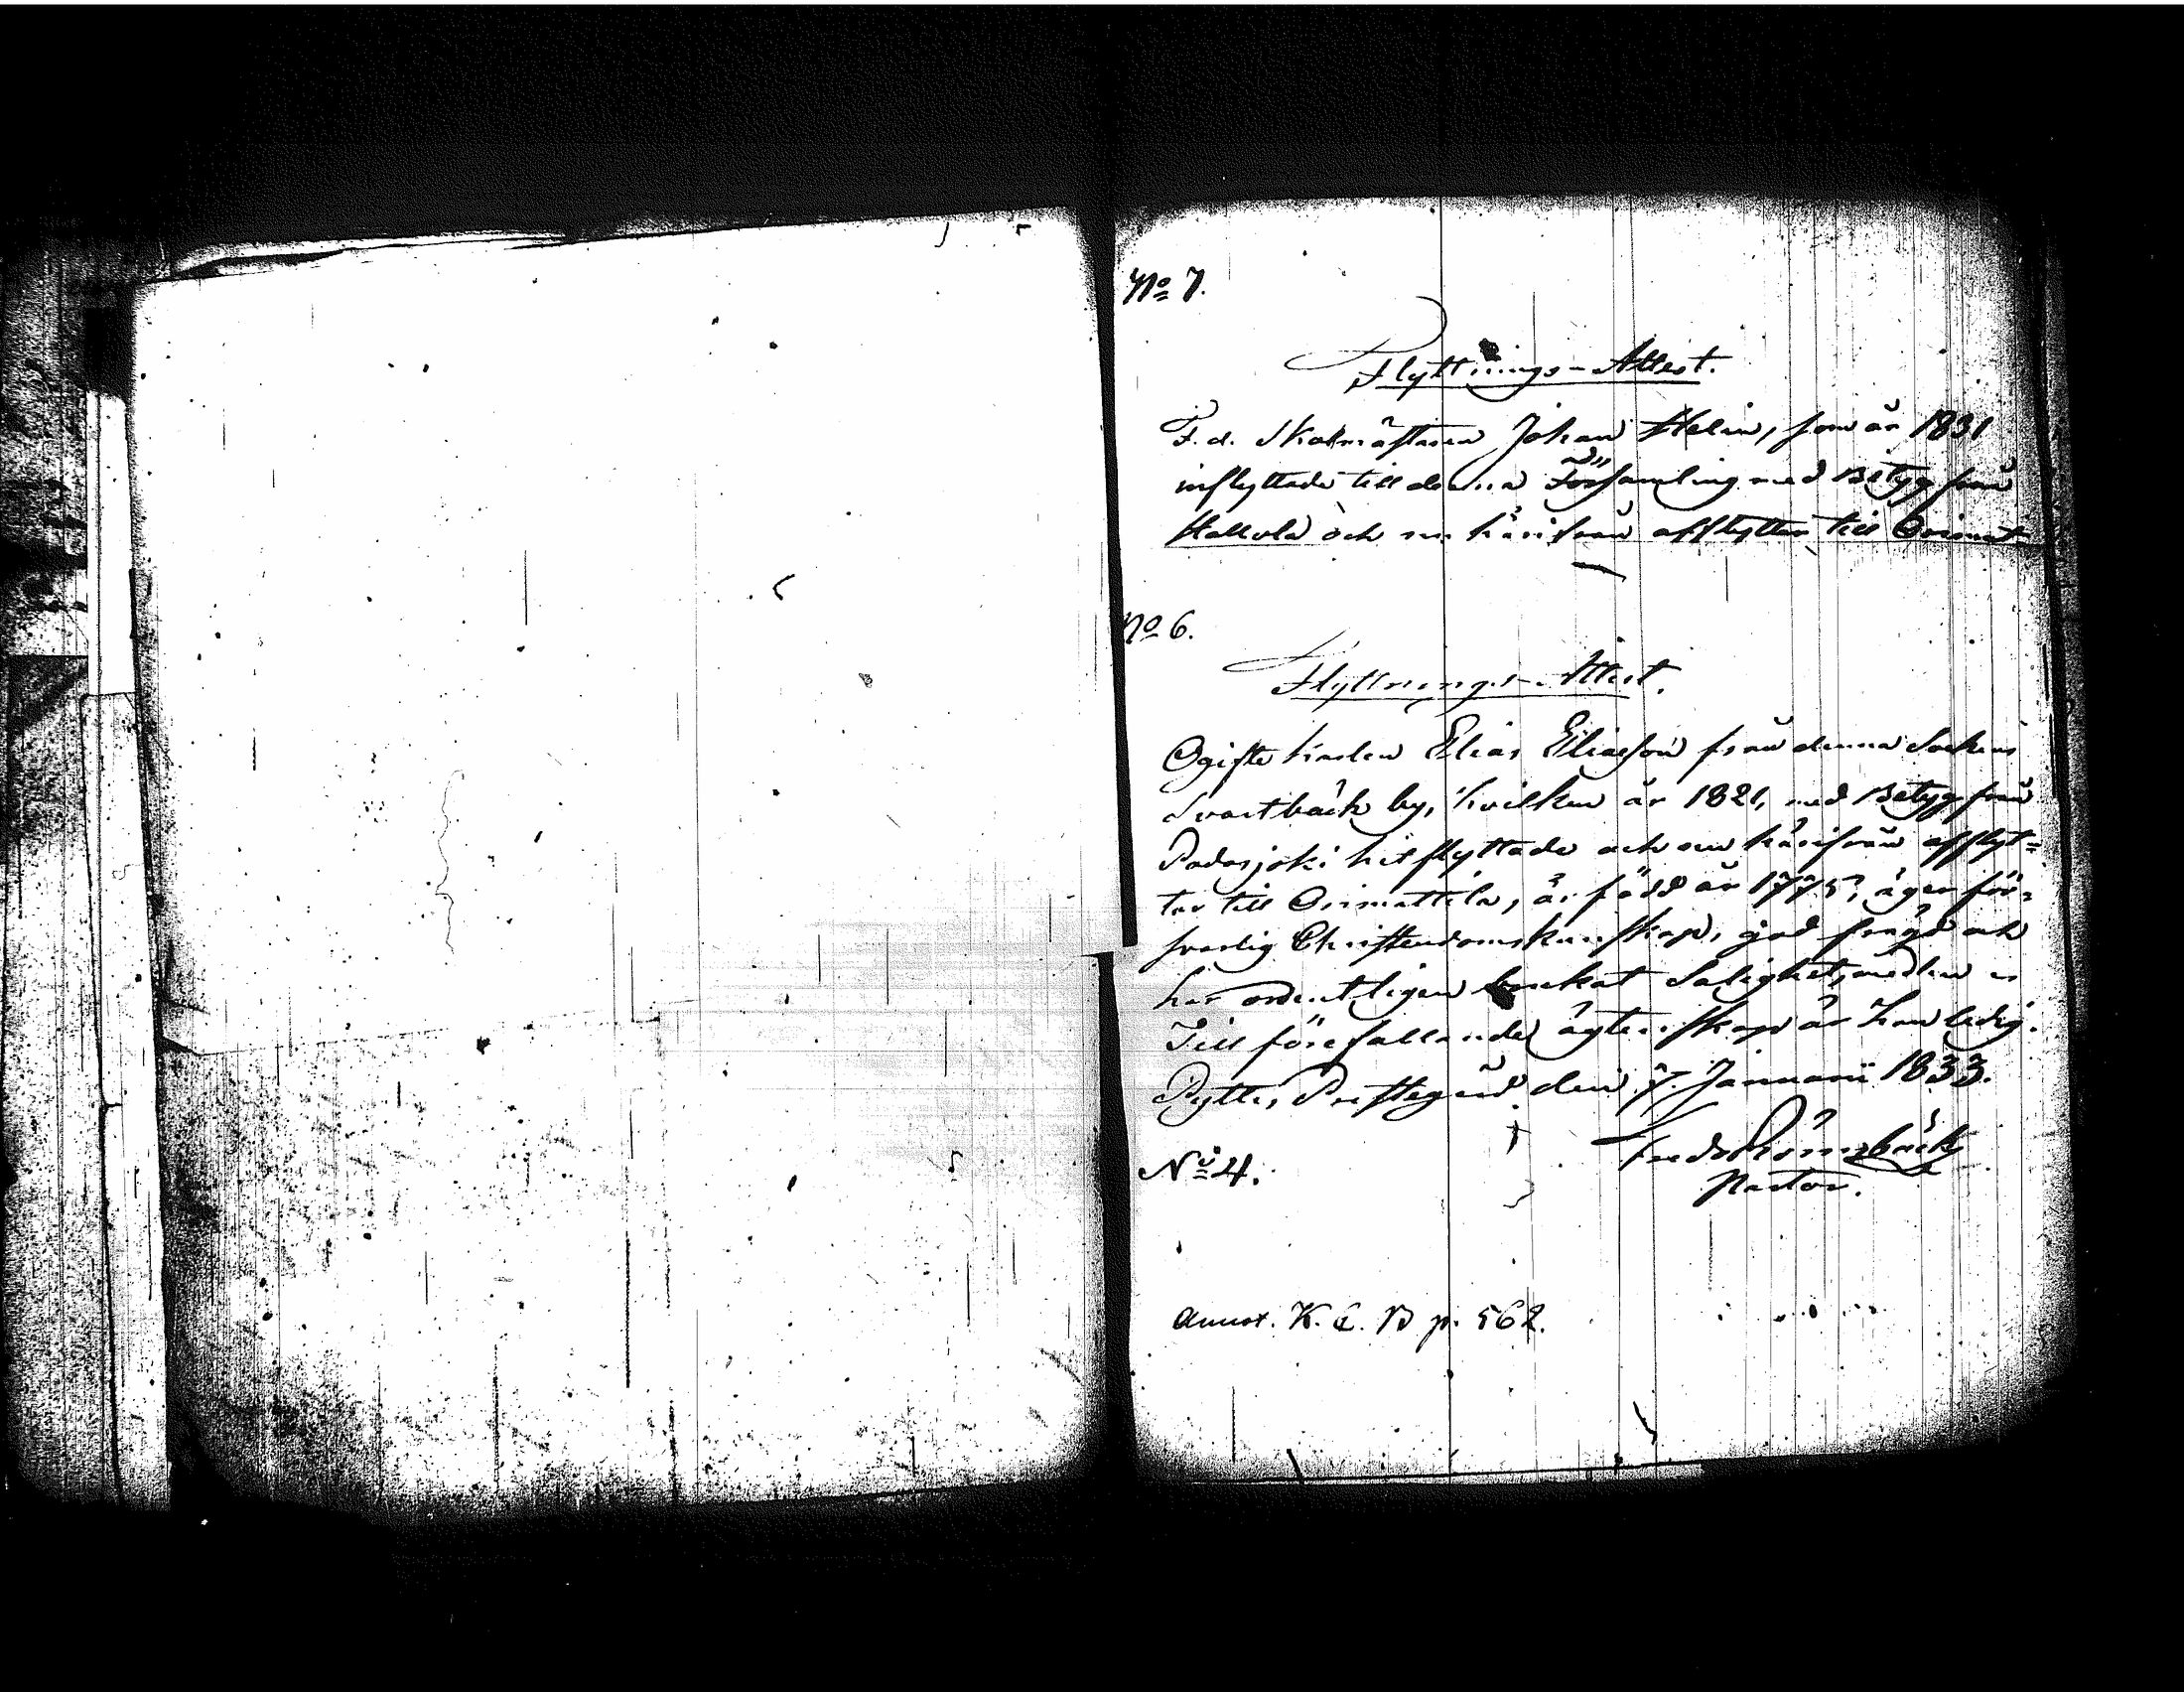 No 7.
Flyttnings-Attest.
F. d. Skolmästaren Johan Helin, som år 1831
inflyttade till denna Församling med Betyg från
Hollola och nu härifrån afflyttar till Orimat
No 6.
Flyttnings-Attest.
Ogifte karlen Elias Eliasson från denna Sockens
Svartbäck by, hvilken år 1821, med Betyg från
Padasjoki hitflyttade och nu härifrån afflyt=
tar till Orimattila, är född år 1775, äger för=
svarlig Christendomskunskap, god frägd och
har ordentligen brukat Salighetsmedlen
Till förefallande ägtenskap är han ledig.
Pyttis Prestegård den 7. Januarii 1833.
Fred. Rönnbäck
Pastor.
No 4.
Annot. K. C. B p. 562.